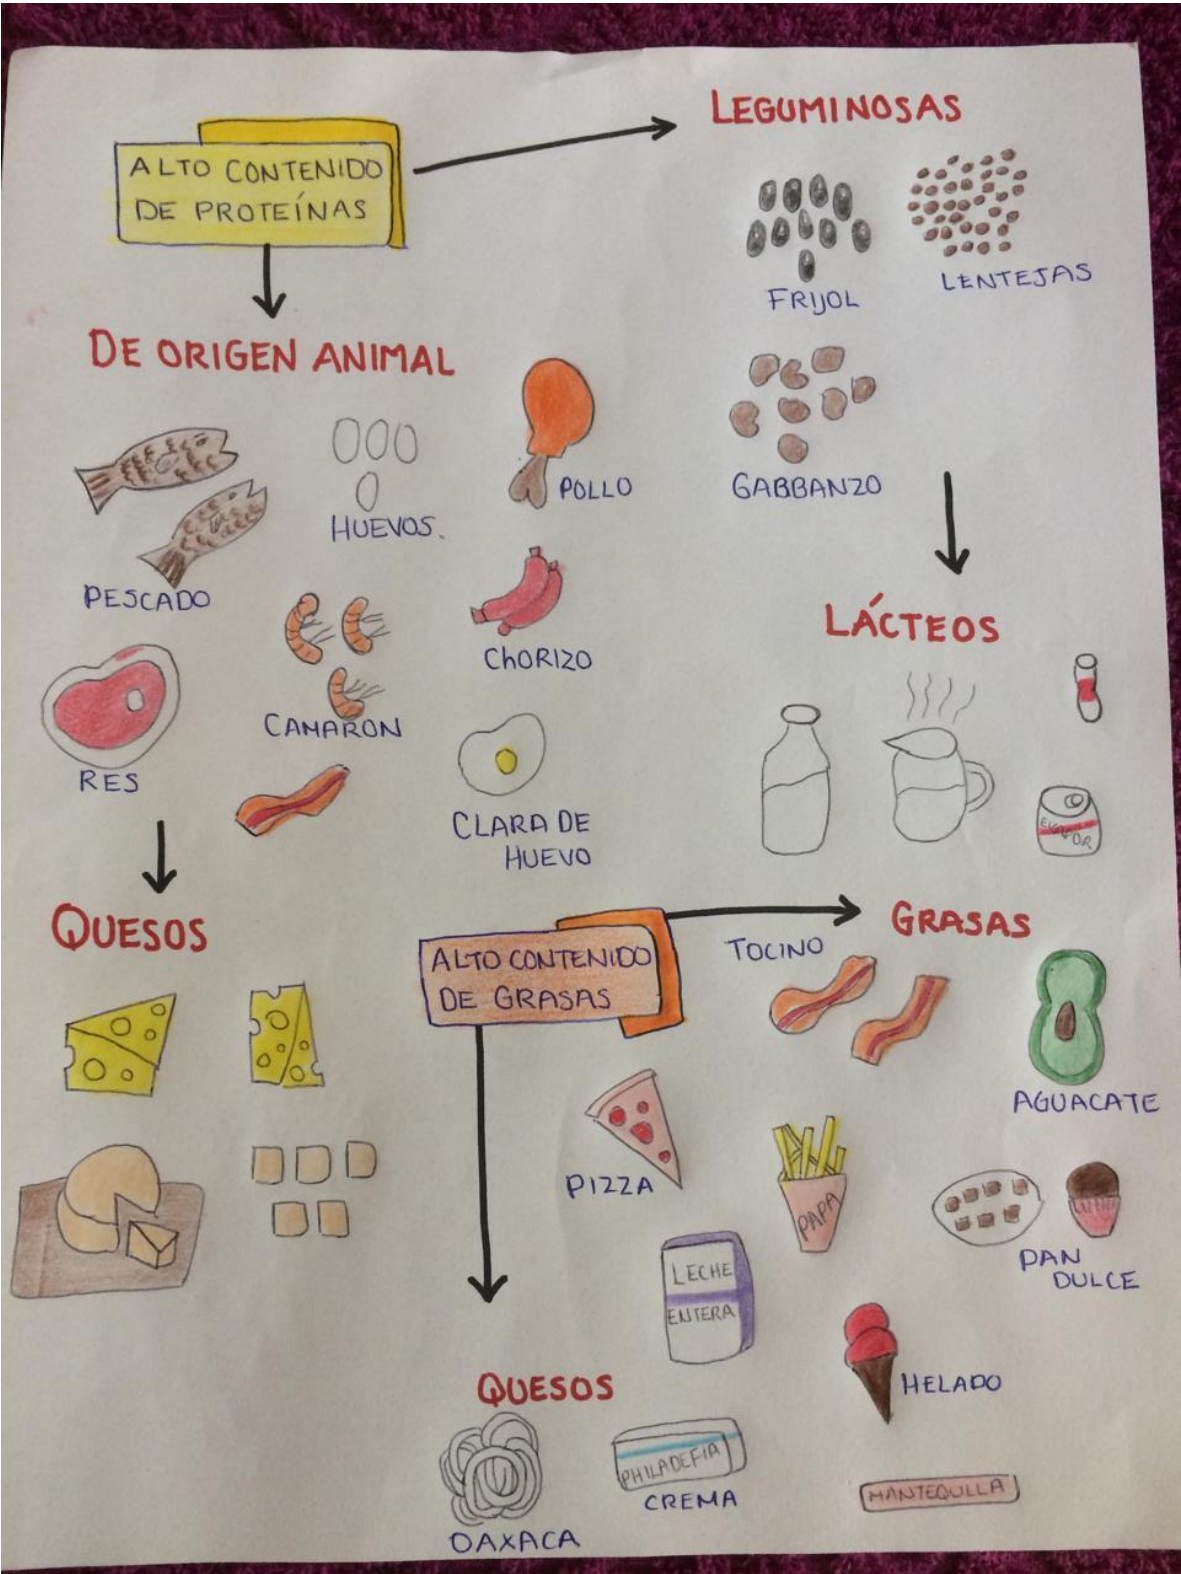 ALTO CONTENIDO
DE PROTEÍNAS
LEGUMINOSAS
FRIJOL
LENTEJAS
GABBANZO
DE ORIGEN ANIMAL
PESCADO
HUEVOS.
POLLO
CHORIZO
CAMARON
RES
CLARA DE
HUEVO
LÁCTEOS
QUESOS
ALTO CONTENIDO
DE GRASAS
GRASAS
TOCINO
AGUACATE
PIZZA
PAPA
PAN
DULCE
LECHE
ENTERA
HELADO
QUESOS
OAXACA
PHILADEFIA
CREMA
MANTEQUILLA